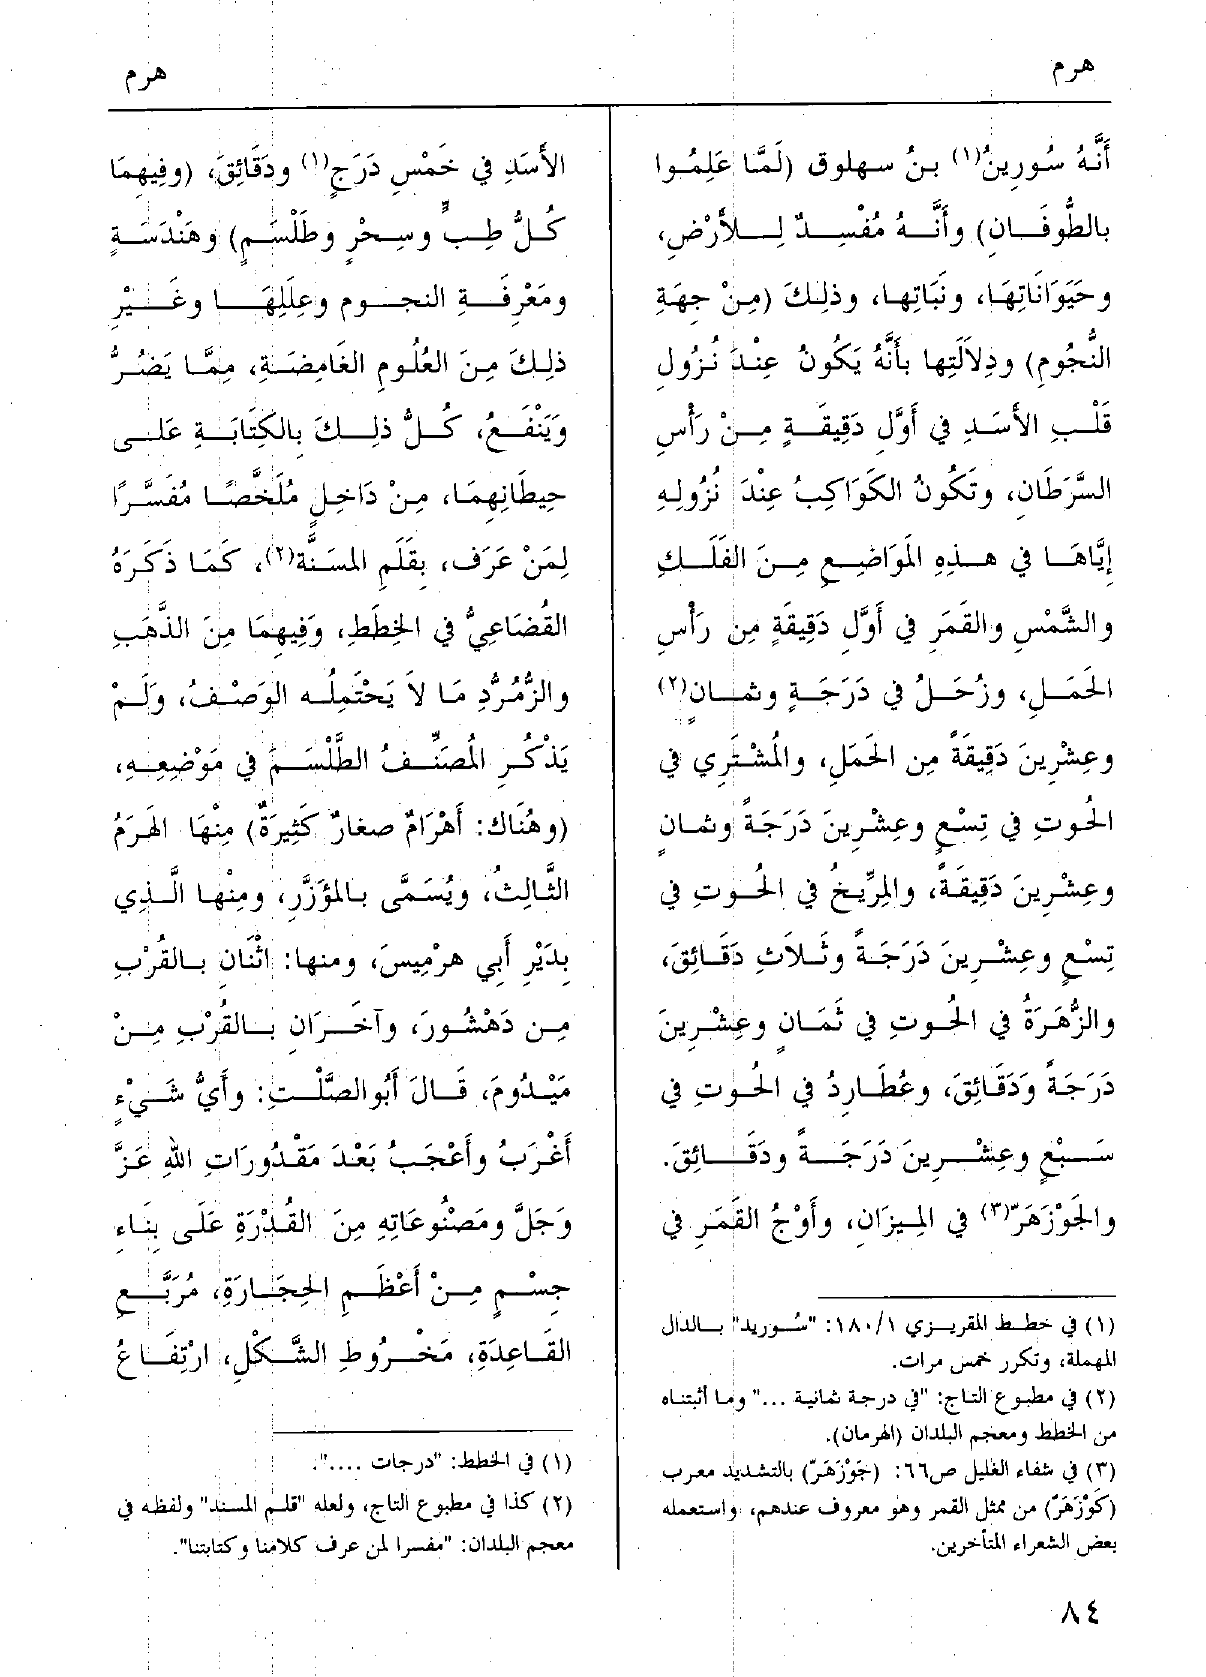 هرم
هرم
أَنَّهُ سُورِينُ(١) بنُ سهلوق (لَمَّا عَلِمُوا
بالطُّوفَانِ) وأَنَّهُ مُفْسِدٌ لِلأَرْضِ،
وحَيَوَانَاتِهَا، ونَبَاتِها، وذلِكَ (مِنْ جِهَةِ
النُّجُومِ) ودِلاَلَتِها بأَنَّهُ يَكُونُ عِنْدَ نُزُولِ
قَلْبِ الأَسَدِ في أَوَّلِ دَقِيقَةٍ مِنْ رَأْسِ
السَّرَطَانِ، وتَكُونُ الكَوَاكِبُ عِنْدَ نُزُولِهِ
إِيَّاهَا في هذِهِ المَوَاضِعِ مِنَ الفَلَكِ
والشَّمْسِ والقَمَرِ في أَوَّلِ دَقِيقَةٍ مِن رَأْسِ
الحَمَلِ، وزُحَلُ في دَرَجَةٍ وثمانٍ(٢)
وعِشْرِينَ دَقِيقَةً مِن الحَمَلِ، والمُشْتَرِي في
الحُوتِ في تِسْعٍ وعِشْرِينَ دَرَجَةً وثمانٍ
وعِشْرِينَ دَقِيقَةً، والمِرِّيخُ في الحُوتِ في
تِسْعٍ وعِشْرِينَ دَرَجَةً وثَلاَثِ دَقَائِقَ،
والزُّهَرَةُ في الحُوتِ في ثَمَانٍ وعِشْرِينَ
دَرَجَةً وَدَقَائِقَ، وعُطَارِدُ في الحُوتِ في
سَبْعٍ وعِشْرِينَ دَرَجَةً ودَقَائِقَ.
والجَوْزَهَرّ(٣) في المِيزَانِ، وأَوْجُ القَمَرِ في
(١) في خطط المقريزي ١/١٨٠: "سُوريد" بالدال
المهملة، وتكرر خمس مرات.
(٢) في مطبوع التاج: "في درجة ثمانية ..." وما أثبتناه
من الخطط ومعجم البلدان (الهرمان).
(٣) في شفاء الغليل ص٦٦: (جَوْزَهَرّ) بالتشديد معرب
(كَوْزَهَرّ) من ممثل القمر وهو معروف عندهم، واستعمله
بعض الشعراء المتأخرين.
الأَسَدِ في خَمْسِ دَرَجٍ(١) ودَقَائِقَ، (وفِيهِمَا
كُلُّ طِبٍّ وسِحْرٍ وطَلْسَمٍ) وهَنْدَسَةٍ
ومَعْرِفَةِ النجومِ وعِلَلِهَا وغَيْرِ
ذلِكَ مِنَ العُلُومِ الغَامِضَةِ، مِمَّا يَضُرُّ
وَيَنْفَعُ، كُلُّ ذلِكَ بِالكِتَابَةِ عَلَى
حِيطَانِهِمَا، مِنْ دَاخِلٍ مُلَخَّصًا مُفَسَّرًا
لِمَنْ عَرَف، بِقَلَمِ المسَنَّة(٢)، كَمَا ذَكَرَهُ
القُضَاعِيُّ في الخِطَطِ، وَفِيهِمَا مِنَ الذَّهَبِ
والزُّمُرُّدِ مَا لاَ يَحْتَمِلُه الوَصْفُ، وَلَمْ
يَذْكُرِ المُصَنِّفُ الطَّلْسَمَ في مَوْضِعِهِ،
(وهُنَاك: أَهْرَامٌ صغارٌ كَثِيرَةٌ) مِنْهَا الهَرَمُ
الثَّالِثُ، ويُسَمَّى بالمؤَزَّرِ، ومِنْها الَّذِي
بِدَيْرِ أَبِي هرْمِيسَ، ومنها: اثْنَانِ بالقُرْبِ
مِن دَهْشُورَ، وآخَرَانِ بالقُرْبِ مِنْ
مَيْدُومَ، قَالَ أَبُو الصَّلْتِ: وأَيُّ شَيْءٍ
أَغْرَبُ وأَعْجَبُ بَعْدَ مَقْدُورَاتِ اللهِ عَزَّ
وَجَلَّ ومَصْنُوعَاتِهِ مِنَ القُدْرَةِ عَلَى بِنَاءِ
جِسْمٍ مِنْ أَعْظَمِ الحِجَارَةِ، مُرَبَّعِ
القَاعِدَةِ، مَخْرُوطِ الشَّكْلِ، ارْتِفَاعُ
(١) في الخطط: "درجات ....".
(٢) كذا في مطبوع التاج، ولعله "قلم المسند" ولفظه في
معجم البلدان: "مفسرا لمن عرف كلامنا وكتابتنا".
٨٤